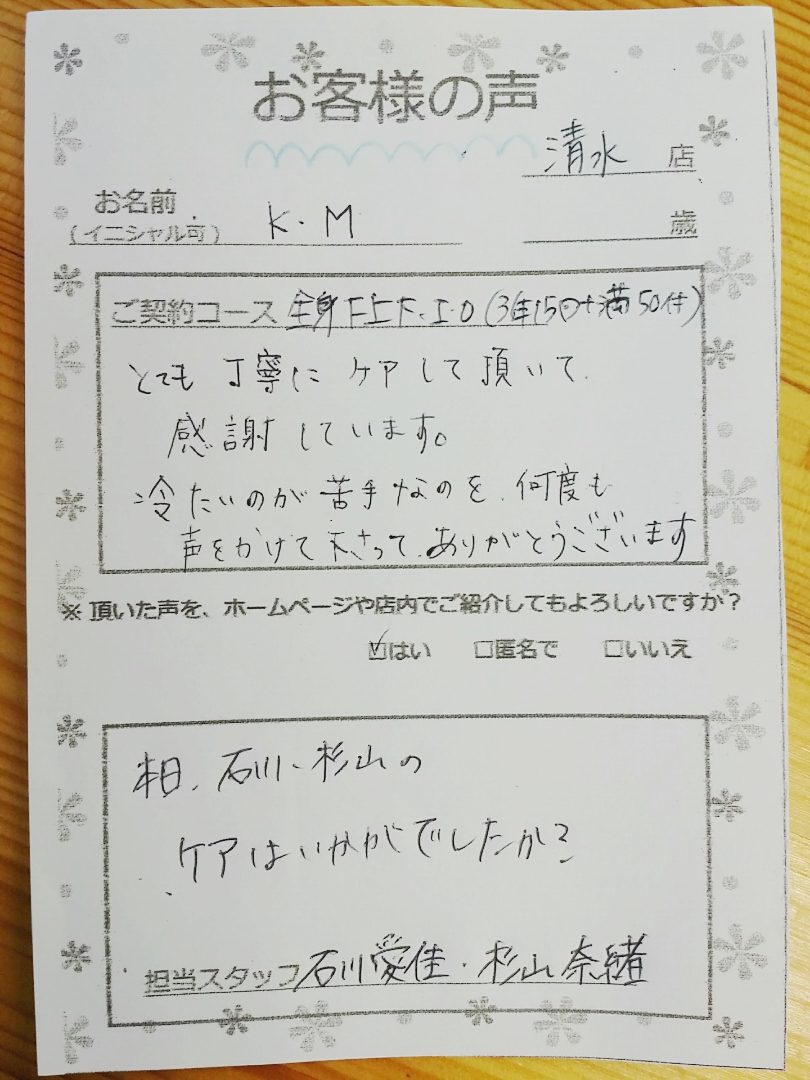 お客様の声
清水 店
お名前
(イニシャル可) K.M 歳
ご契約コース 全身 (3年15回+満50付)
とても丁寧にケアして頂いて
感謝しています。
冷たいのが苦手なのを、何度も
声をかけて下さって、ありがとうございます
※頂いた声を、ホームページや店内でご紹介してもよろしいですか?
☑はい □匿名で □いいえ
本日、石川、杉山の
ケアはいかがでしたか?
担当スタッフ 石川愛佳・杉山奈緒